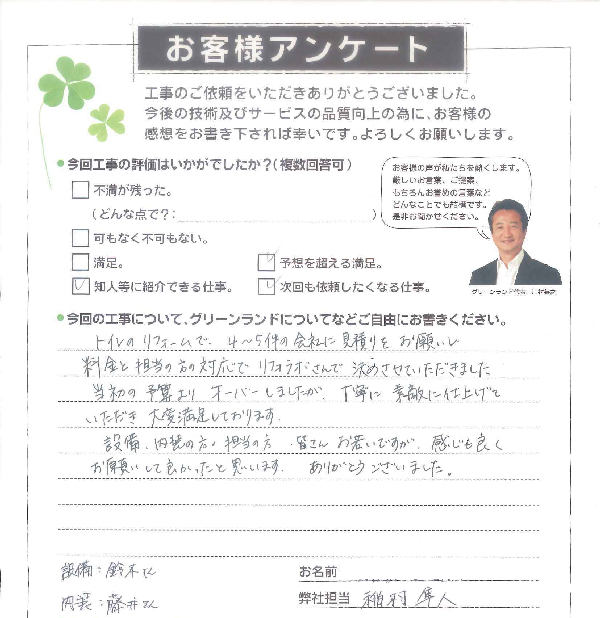 お客様アンケート
工事のご依頼をいただきありがとうございました。
今後の技術及びサービスの品質向上の為に、お客様の
感想をお書き下されば幸いです。よろしくお願いします。
今回工事の評価はいかがでしたか?(複数回答可)
不満が残った。
(どんな点で?: )
可もなく不可もない。
満足。
予想を超える満足。
知人等に紹介できる仕事。
次回も依頼したくなる仕事。
お客様の声が私たちを動くします。
厳しいお言葉、ご提案、
もちろんお誉めの言葉など
どんなことでも結構です。
是非お聞かせください。
グリーンランド代表
今回の工事について、グリーンランドについてなどご自由にお書きください。
トイレのリフォームで、4〜5件の会社に見積りをお願いし
料金と担当の方の対応でリフォラボさんで決めさせていただきました
当初の予算よりオーバーしましたが、丁寧に素敵に仕上げて
いただき大変満足しております。
設備、内装の方、担当の方、皆さんお若いですが、感じも良く
お願いして良かったと思います。ありがとうございました。
設備:鈴木さん
内装:藤井さん
お名前
弊社担当 稲村隼人